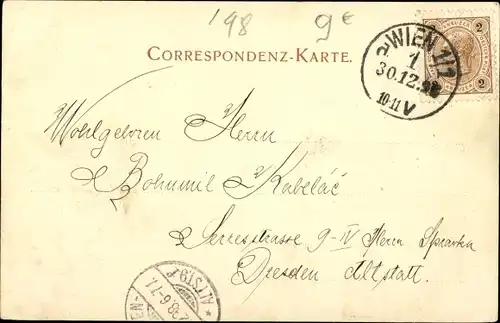 198 9€
CORRESPONDENZ-KARTE.
WIEN 1/1
1
30.12.98
10-11 V
2 2
Wohlgeboren Herrn
Bohumil Kabeláč
Serrestrasse 9-IV Herrn
Dresden Altstadt.
ALTST. 9